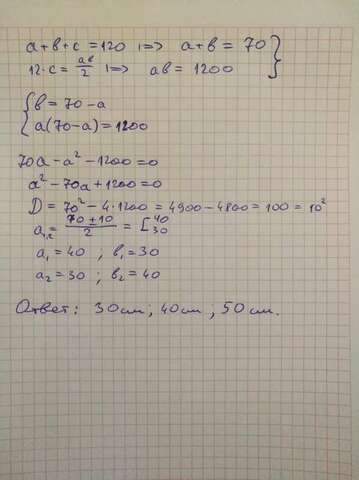 a+b+c=120 |=> a+b=70 }
12·c=ab/2 |=> ab=1200
{ b=70-a
a(70-a)=1200
70a-a²-1200=0
a²-70a+1200=0
D=70²-4·1200=4900-4800=100=10²
a₁,₂=(70±10)/2=[40 30
a₁=40 ; b₁=30
a₂=30 ; b₂=40
Ответ: 30см; 40см; 50см.